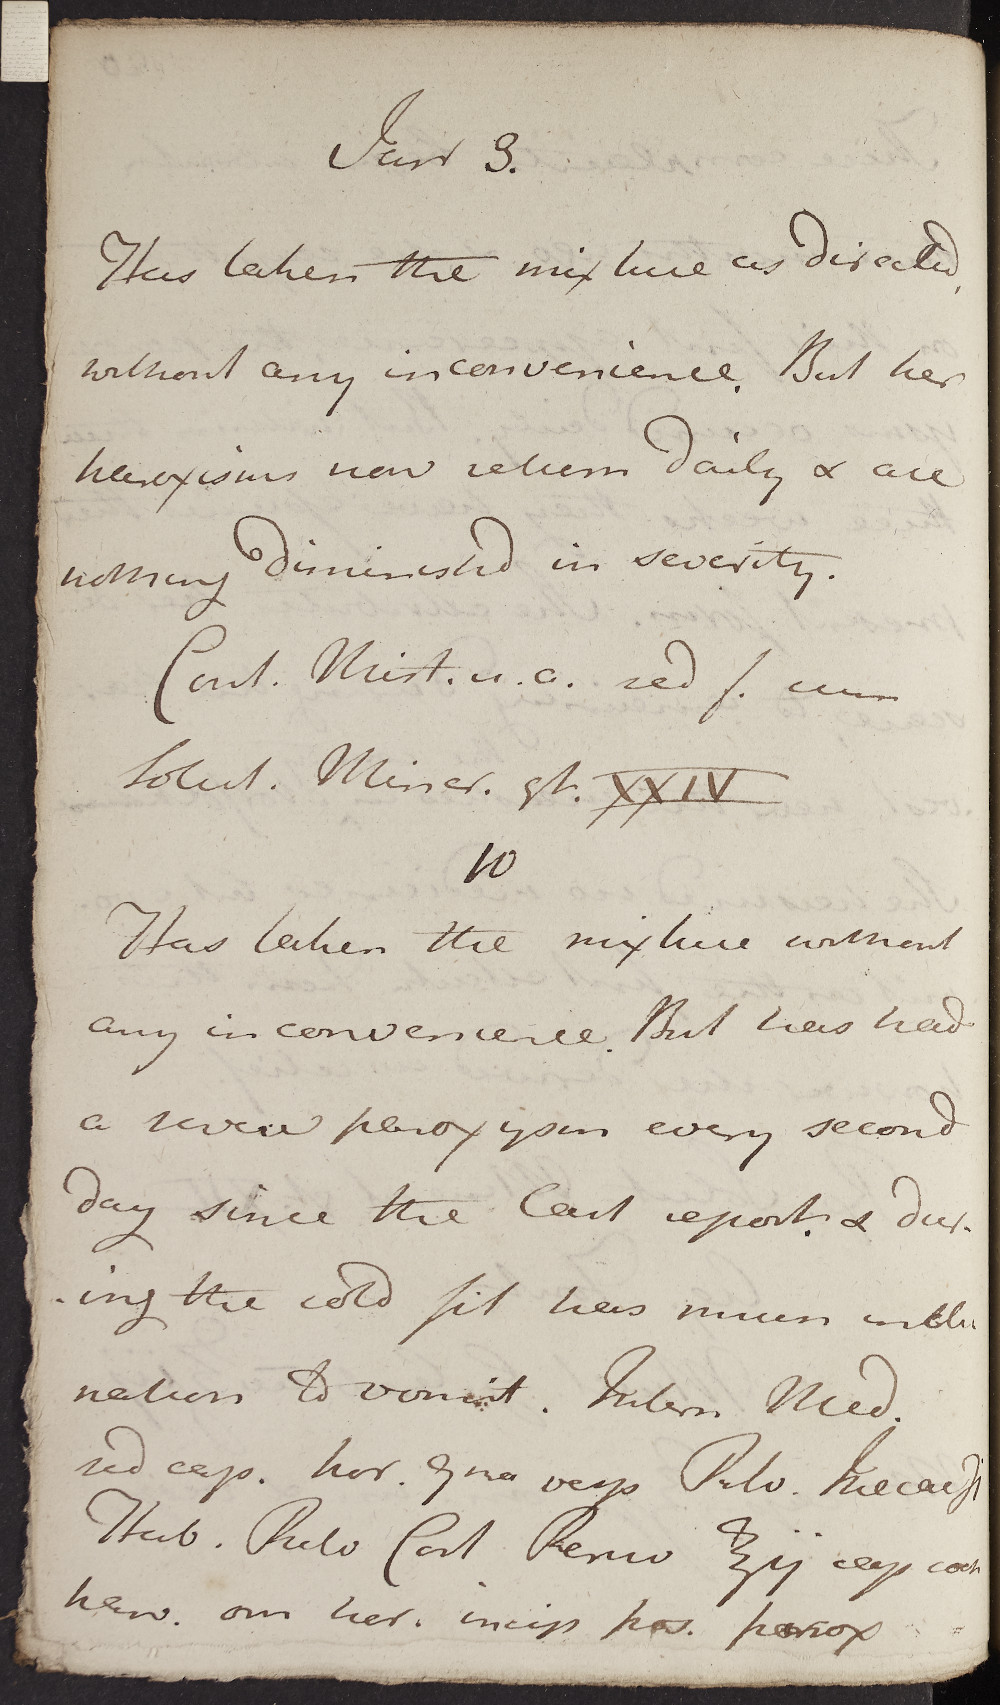 Janr 3.
Has taken the mixture as directed,
without any inconvenience. But her
paroxisms now return daily & are
nothing diminished in severity.
Cont. Mist. u. a. sed f. cum
Solut. Miner. gt. XXIV
10
Has taken the mixture without
any inconvenience. But has had
a severe paroxysm every second
day since the last report. & dur-
-ing the cold fit has much incli
nation to vomit. Interm Med.
sed cap. hor. 7ma vesp Pulv. Ipecac ʒi
Hab. Pulv Cort Peruv ℥ij cap coch
parv. om hor. incip pos. parox